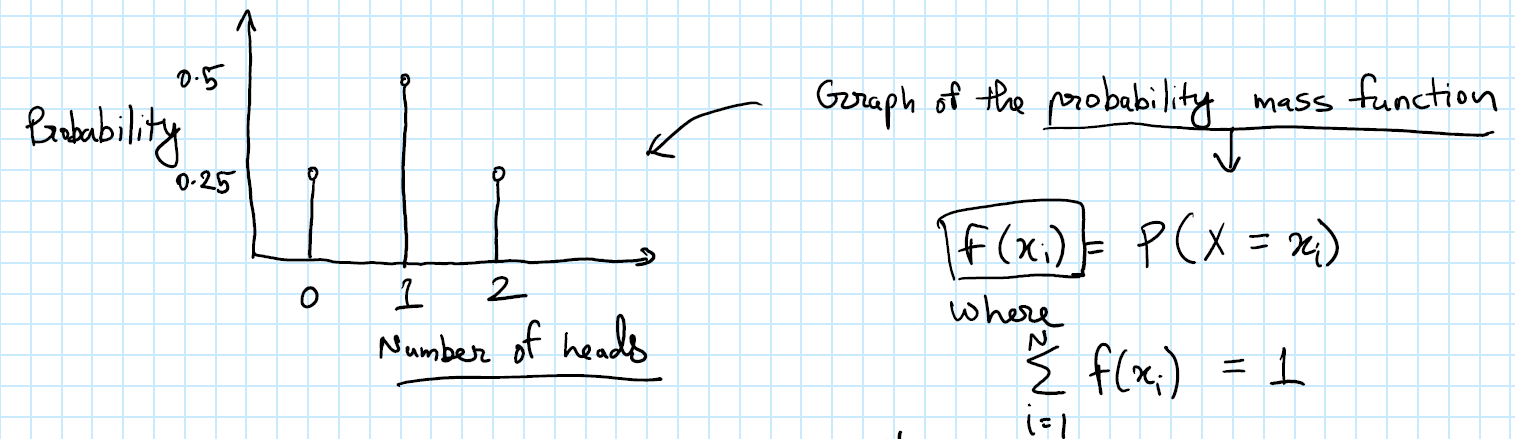 0.5
Probability
0.25
0 1 2
Number of heads
Graph of the probability mass function
f(xᵢ) = P(X = xᵢ)
where
N
∑ f(xᵢ) = 1
i=1